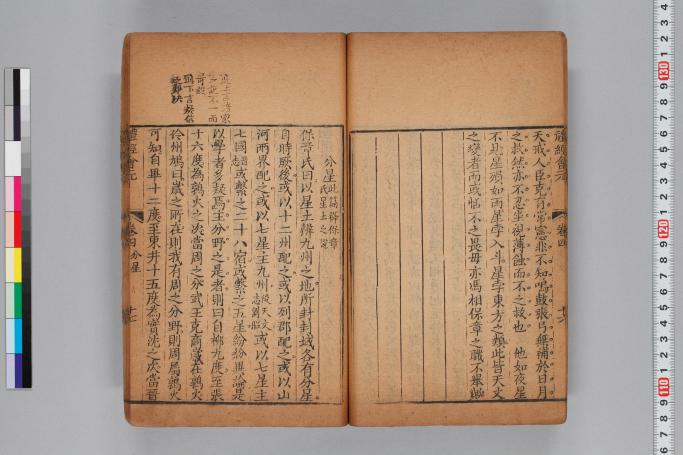 禮經會元
卷四
天戒人臣克有常憲非不知嗚鼓張弓無補於日月
之救然亦不忍坐視薄蝕而不之救也 他如夜星
不見星殞如雨星孛入斗星孛東方之類此皆天文
之變者而或恬不之畏毋亦馮相保章之職不舉歟
分星此篇辨保章
氏星土之說
保章氏曰以星土辨九州之地所封封域各有分星
自時厥後或以十二州配之或以列郡配之或以山
河兩界配之或以七星主九州 或以七星主
七國 或繫之二十八宿或繫之五星紛紛異論是
以學者多疑焉主分野之是者則曰自柳九度至張
十六度為鶉火之次當周之分武王克商歲在鶉火
伶州鳩曰歲之所在則我有周之分野則周屬鶉火
可知自畢十二度至東井十五度為實沈之次當晉
禮經會元
卷四 分星